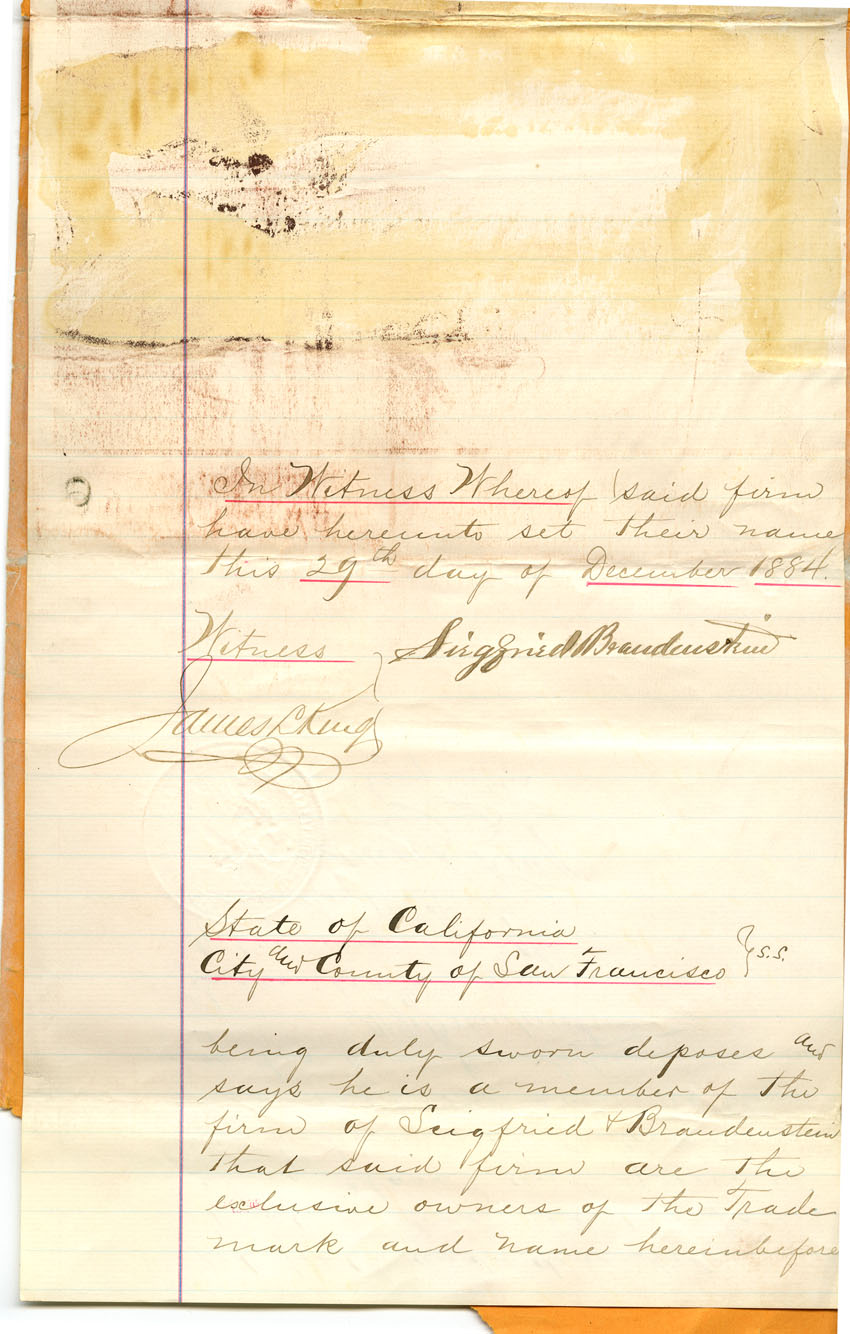 In Witness Whereof said firm
have hereunto set their name
this 29th day of December 1884.
Witness
Siegfried Brandenstein
James L King
State of California
City and County of San Francisco } s.s.
being duly sworn deposes and
says he is a member of the
firm of Seigfried & Brandenstein
that said firm are the
exclusive owners of the Trade
mark and name hereinbefore